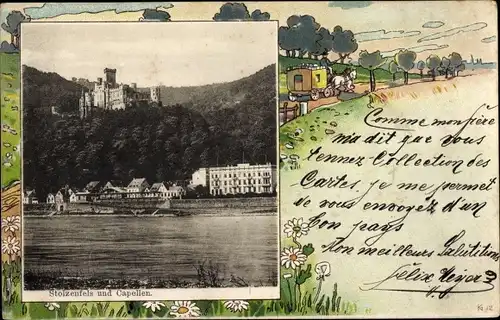 Stolzenfels und Capellen.
Comme mon frère
m'a dit que vous
tennez Collection des
Cartes, je me permet
de vous envoyez d'un
bon pays
mon meilleurs Salutations
Félix